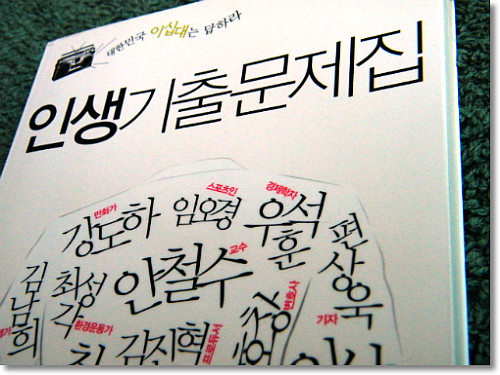 대한민국 이십대는 답하라
인생기출문제집
만화가
강도하
스포츠인
임오경
경제학자
우석훈
편상욱
기자
김남희
최성각
환경운동가
안철수
교수
김진혁
프로듀서
변호사